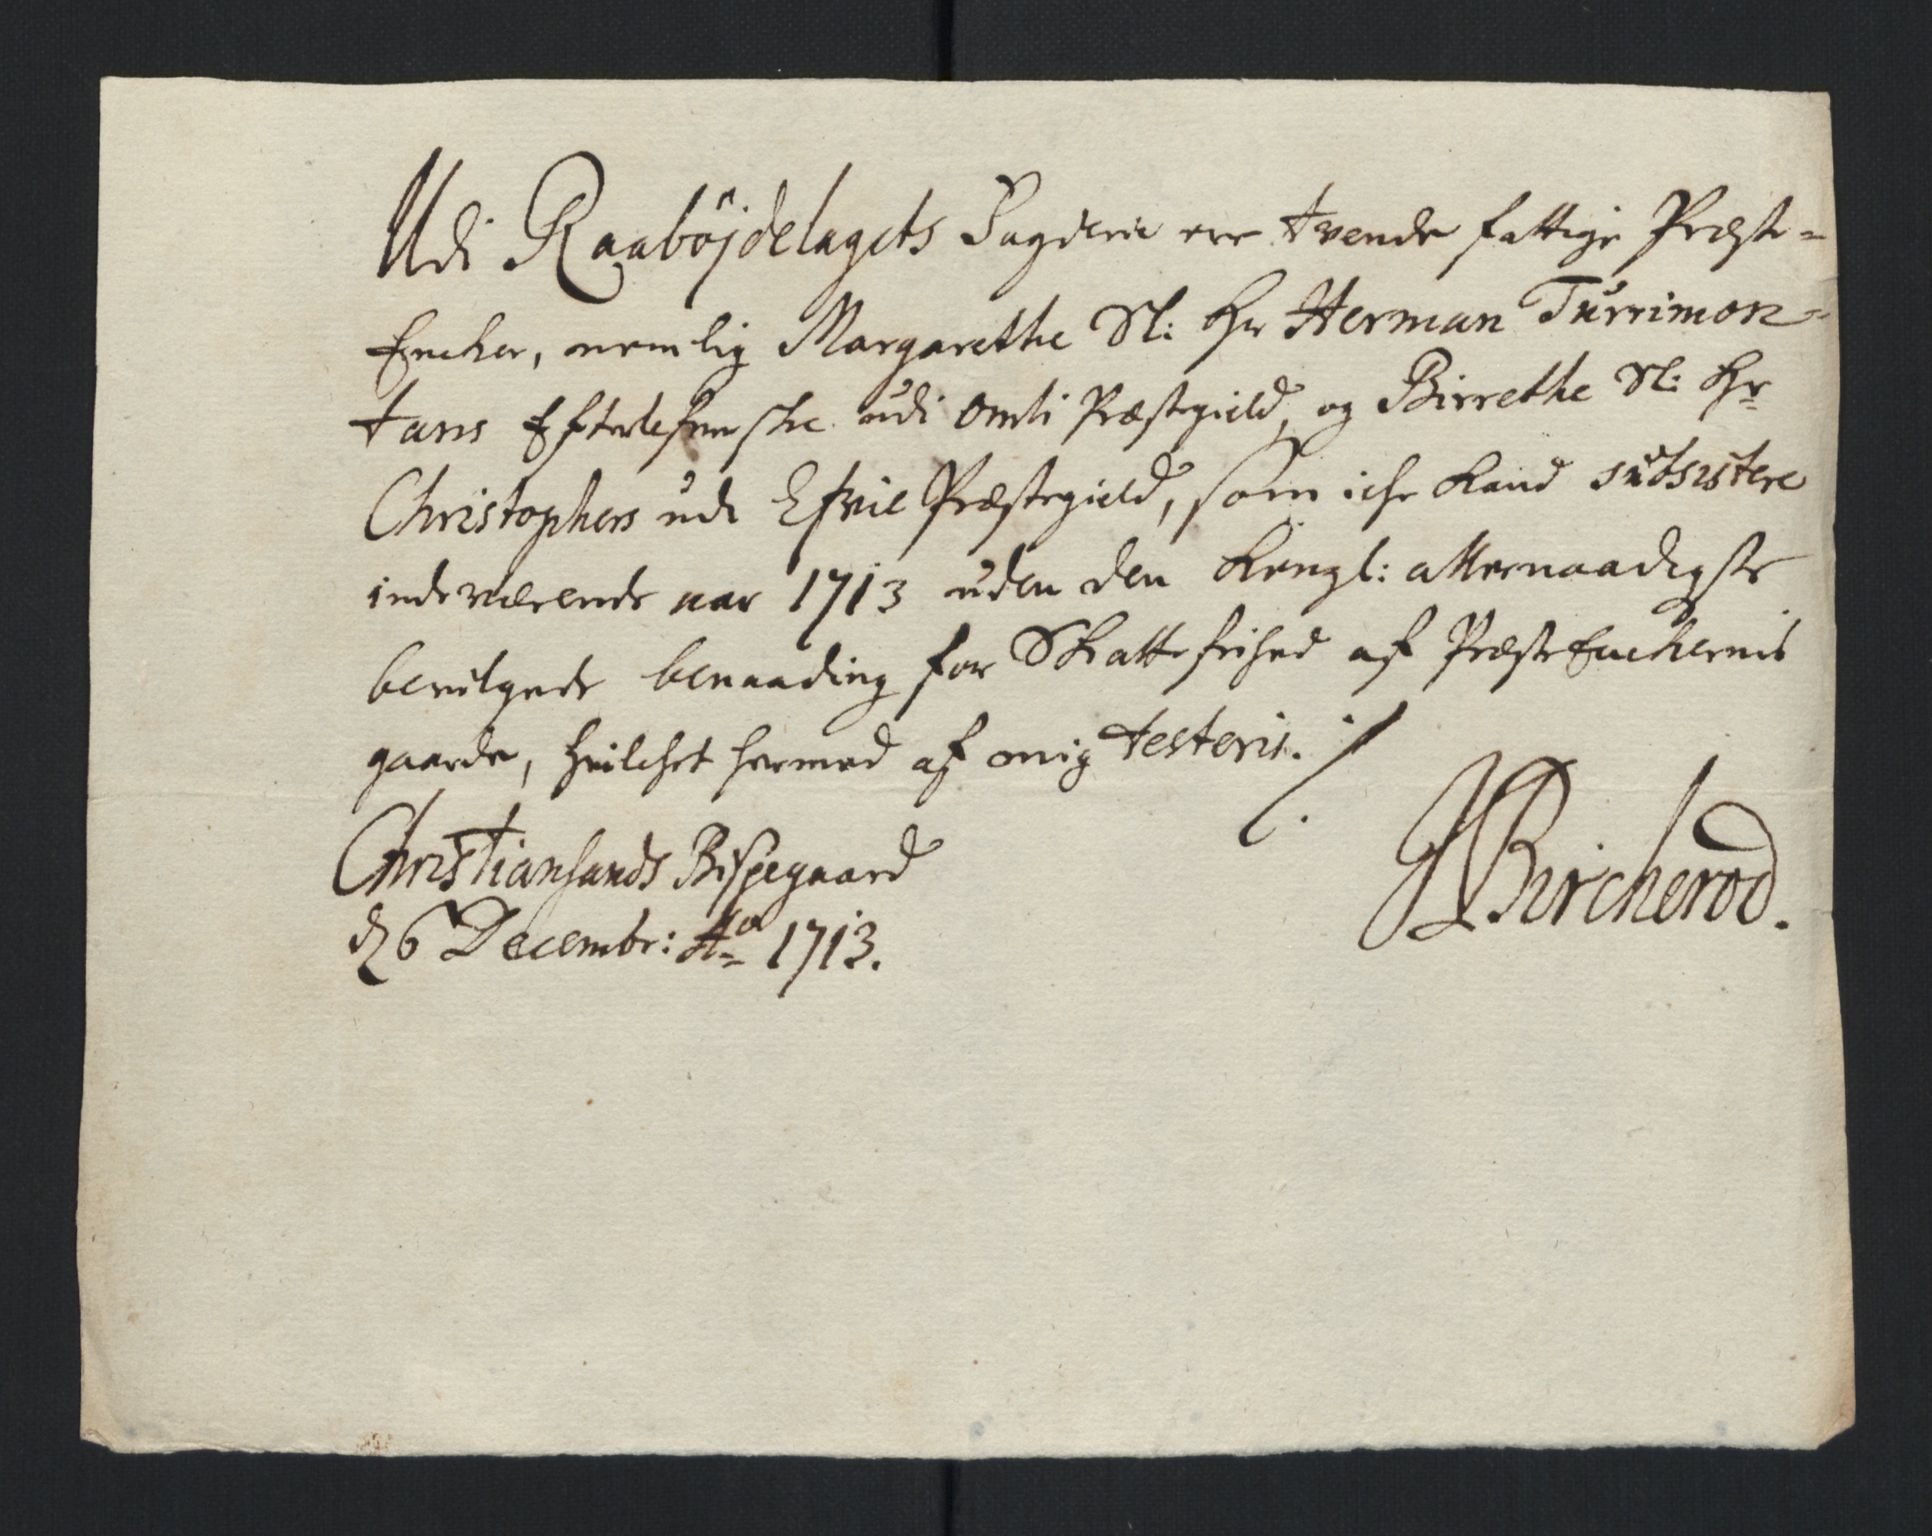 Udi Raabÿjdelagets Fogderie ere tvende fattige Præste-
Encker, nemlig Margarethe Sl: Hr Herman Turrimon-
tans Efterlefverske udi Omli Præstegield, og Birrethe Sl: Hr
Christophers udi Efvie Præstegield, som iche kand subsistere
indeværende aar 1713 uden den Kongl: allernaadigste
bevilgede benaading for Skattefrihed af Præste Enchernis
gaarde, hvilchet hermed af mig testeris. ./.
Christiansands Bispegaard
d 6 Decembr: Ao 1713.
JBircherod.